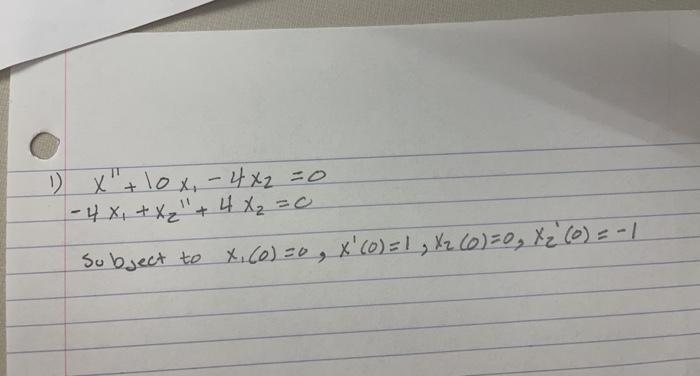 1) x" + 10 x₁ - 4x₂ = 0
-4 x₁ + x₂" + 4 x₂ = 0
Subject to x₁(0) = 0, x'(0) = 1, x₂(0) = 0, x₂'(0) = -1